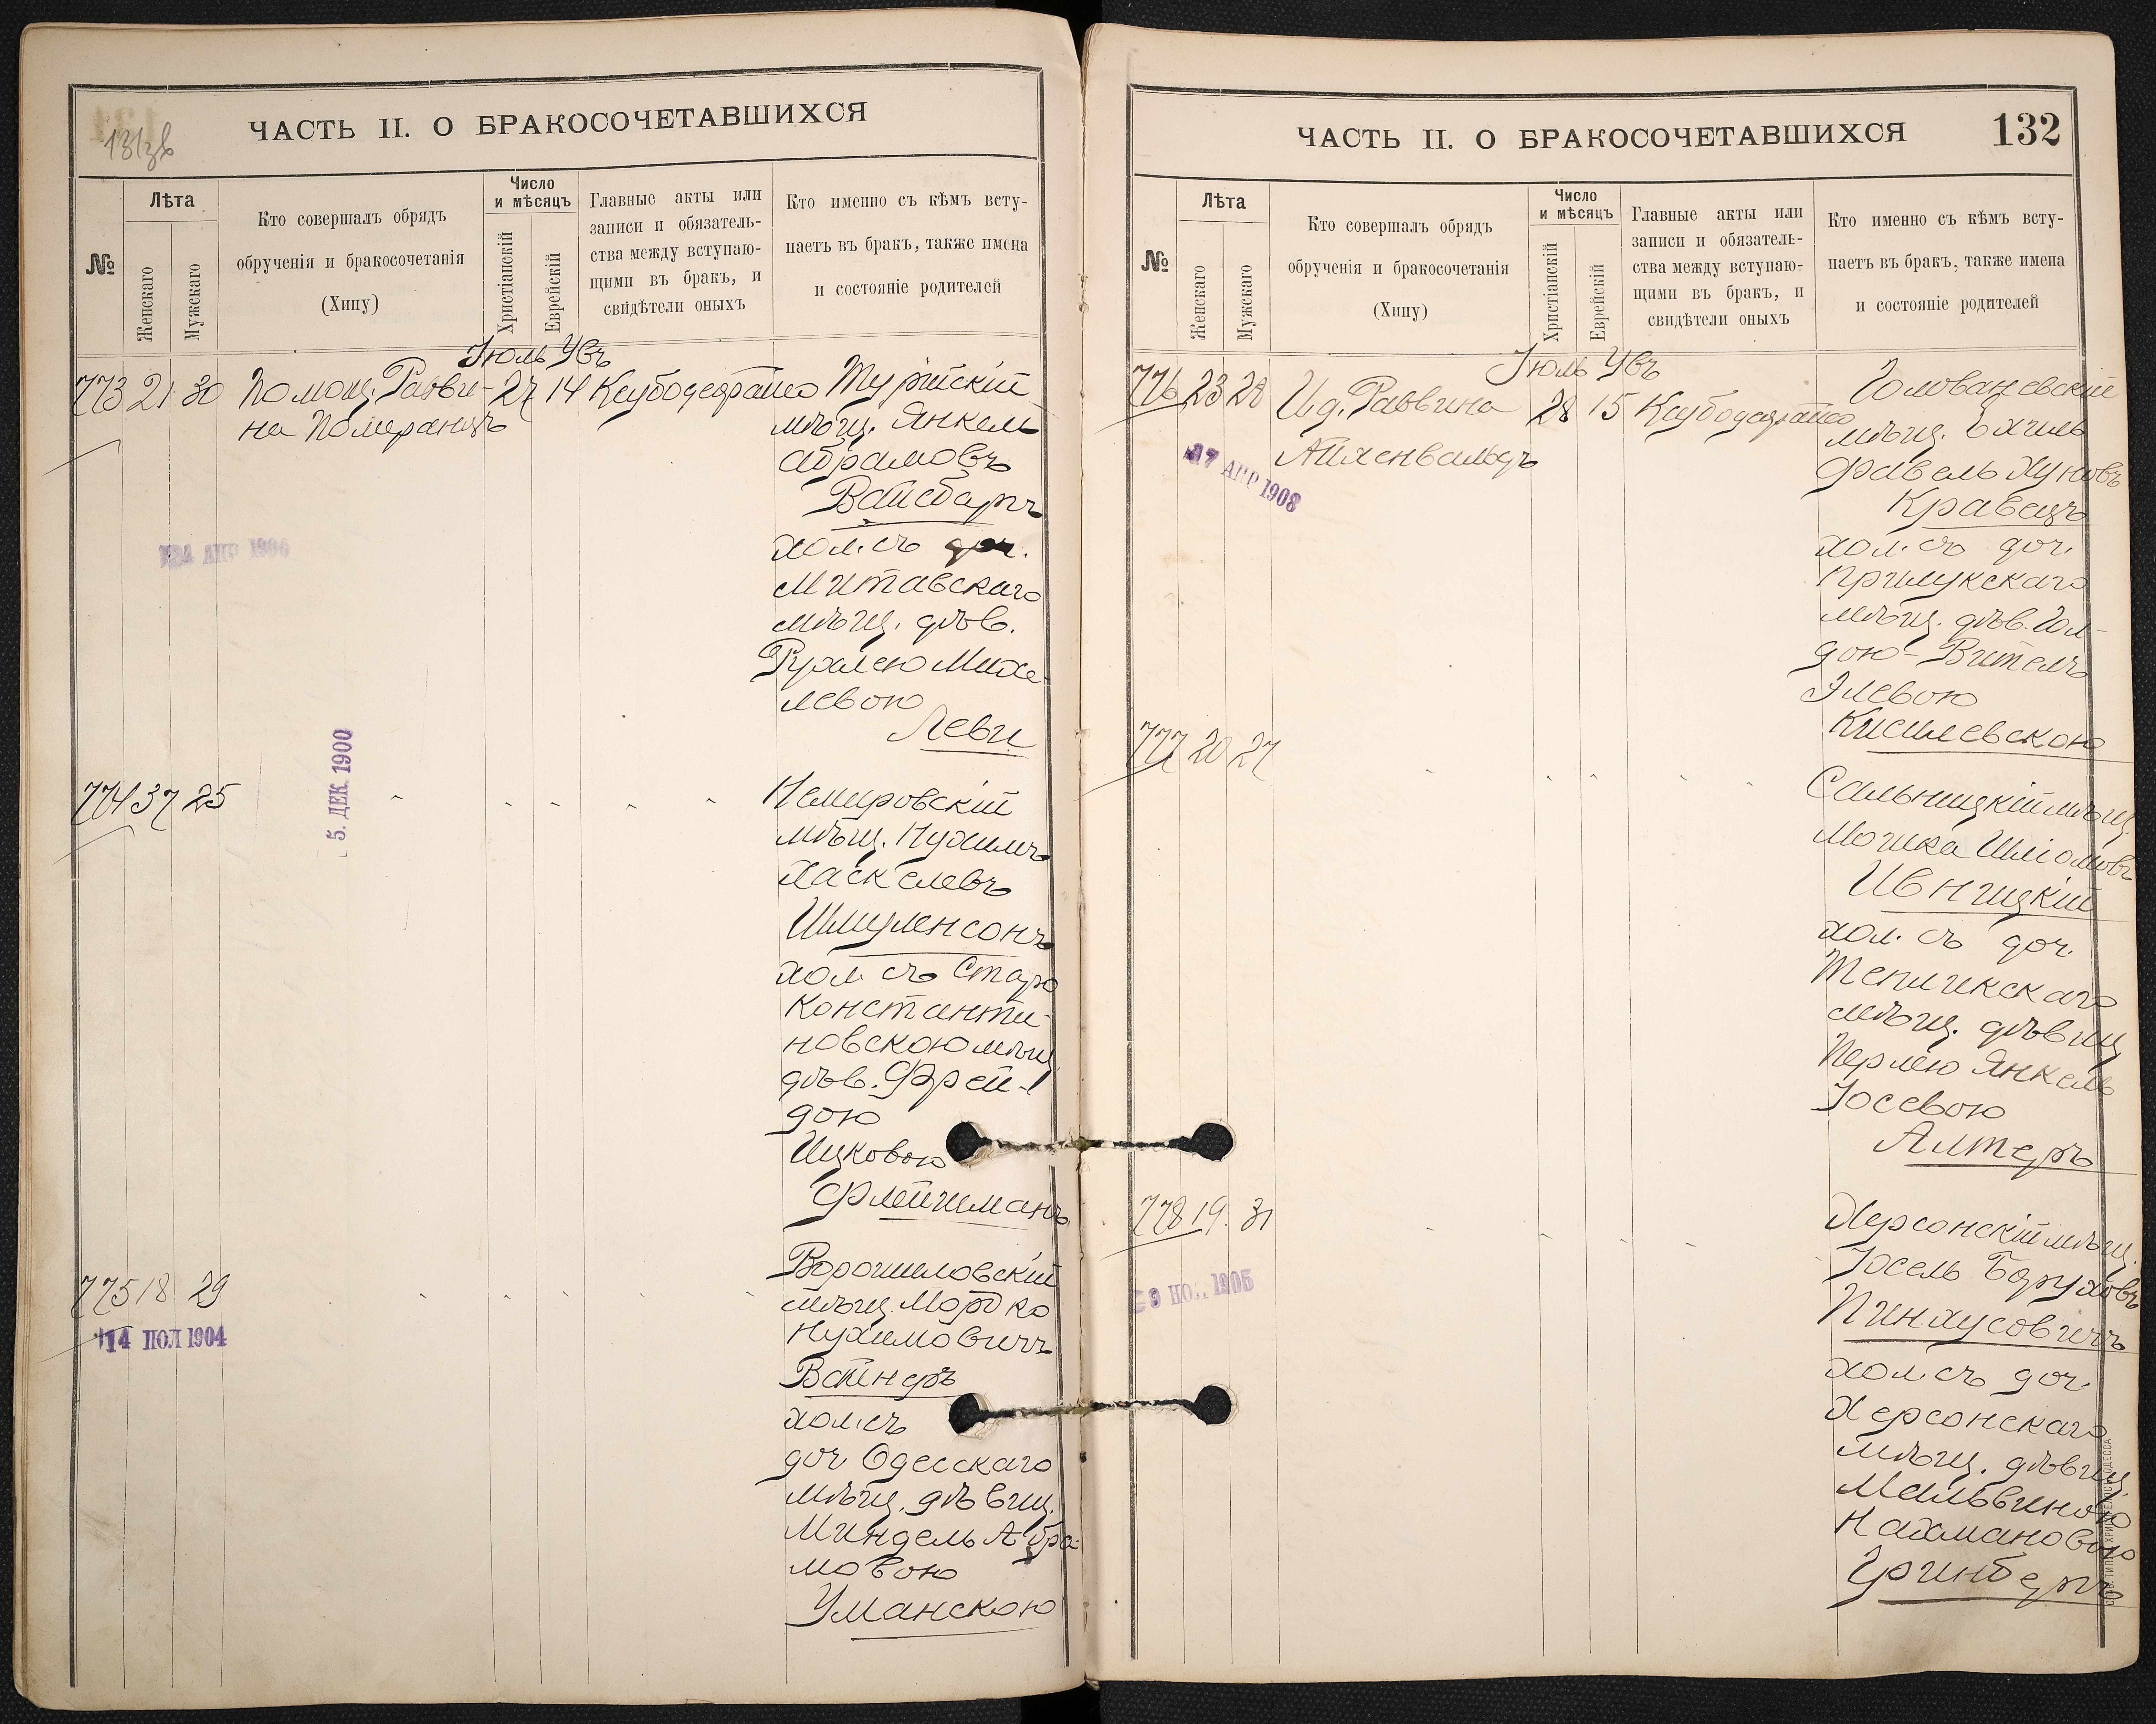 131зв
ЧАСТЬ II. О БРАКОСОЧЕТАВШИХСЯ
№
Лѣта
Женскаго
Мужскаго
Кто совершалъ обрядъ
обрученія и бракосочетанія
(Хипу)
Число
и мѣсяцъ
Христіанскій
Еврейскій
Главные акты или
записи и обязатель-
ства между вступаю-
щими въ бракъ, и
свидѣтели оныхъ
Кто именно съ кѣмъ всту-
паетъ въ бракъ, также имена
и состояніе родителей
Іюль Увъ
773 21 30 Помощ. Равви-
на Померанцъ
27 14
Турійскій
мѣщ. Янкель
Абрамовъ
Вайсбаргъ
хол. съ доч.
Митавскаго
мѣщ. дѣв.
Рухлею Михе-
левою
Леви
24 АПР
5. ДЕК 1900
774 37 25
Немировскій
мѣщ. Нухимъ
Хаскелевъ
Шмуленсонъ
хол. съ Старо
константи-
новскою мѣщ
дѣв. Фрей-
дою
Ицковою
Флейшманъ
775 18 29
14 ПОЛ 1904
Ворошиловскій
мѣщ. Мордко
Нухимовичъ
Вайнеръ
хол. съ
доч. Одесскаго
мѣщ. дѣвиц.
Миндель Абра-
мовою
Уманскою
132
ЧАСТЬ II. О БРАКОСОЧЕТАВШИХСЯ
№
Лѣта
Женскаго
Мужскаго
Кто совершалъ обрядъ
обрученія и бракосочетанія
(Хипу)
Число
и мѣсяцъ
Христіанскій
Еврейскій
Главные акты или
записи и обязатель-
ства между вступаю-
щими въ бракъ, и
свидѣтели оныхъ
Кто именно съ кѣмъ всту-
паетъ въ бракъ, также имена
и состояніе родителей
Іюль Увъ
776 23 28 И.д. Раввина
Айхенвальдъ
28 15
17 АПР 1908
Голованевскій
мѣщ. Ехиль
Файвель Хуновъ
Кравецъ
хол. съ доч.
Прилукскаго
мѣщ. дѣв. Гол-
дою-Вителъ
Элевою
Кисилевскою
777 20 27
Сальницкій мѣщ.
Мошка Шліомовъ
Ивницкій
хол. съ доч.
Тепликскаго
мѣщ. дѣвиц
Перлею Янкель
Іосевою
Алтеръ
778 19. 31
1905
Херсонскій мѣщ.
Іосель Боруховъ
Пинхусовичъ
хол. съ доч.
Херсонскаго
мѣщ. дѣвиц.
Мальвиною
Нахмановою
Гринбергъ